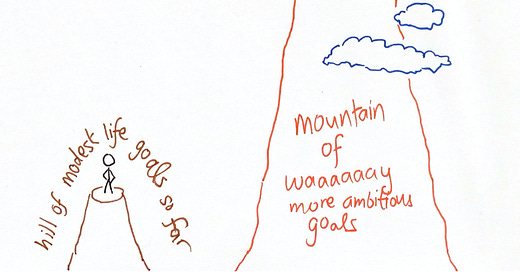 hill of modest life goals so far
mountain
of
waaaaaay
more ambitious
goals